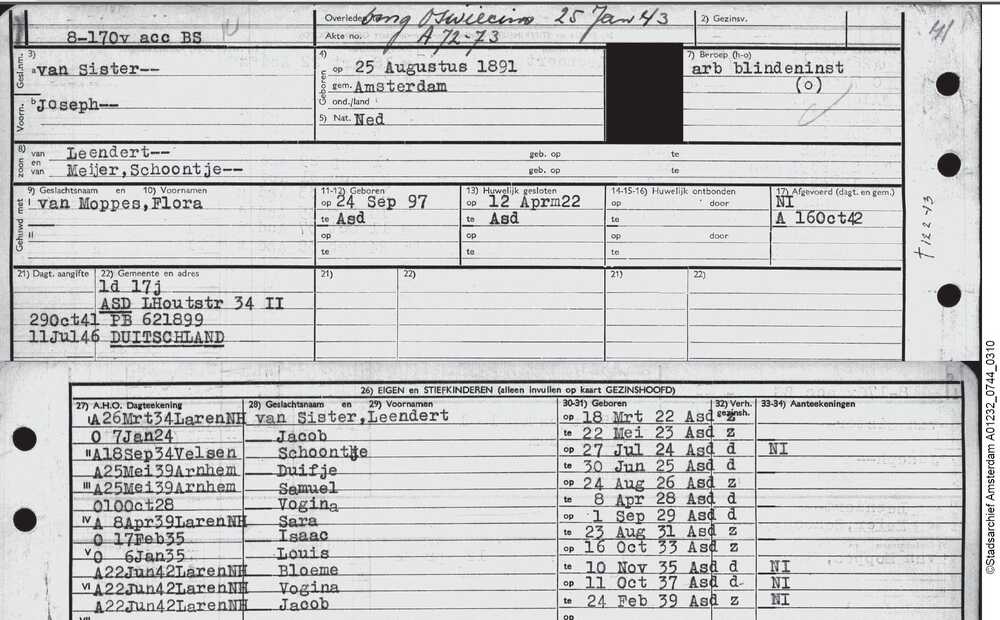 Overleden Oswiecim 25 Jan 43
2) Gezinsv.
8-170v acc BS
Akte no. A 72-73
3)
Gesl.nm. a van Sister--
4) Geboren op 25 Augustus 1891
7) Beroep (h-o)
arb blindeninst
gem. Amsterdam
(o)
Voorn. b Joseph--
ond./land
5) Nat. Ned
8) zoon van Leendert-- geb. op te
en van Meijer,Schoontje-- geb. op te
9) Geslachtsnaam en 10) Voornamen 11-12) Geboren 13) Huwelijk gesloten 14-15-16) Huwelijk ontbonden 17) Afgevoerd (dagt. en gem.)
Gehuwd met I van Moppes,Flora op 24 Sep 97 op 12 Aprm22 op door NI
te Asd te Asd te A 16Oct42
II op op op door
te te te
† 12 2 43
21) Dagt. aangifte 22) Gemeente en adres 21) 22) 21) 22)
ld 17j
ASD LHoutstr 34 II
29Oct41 PB 621899
11Jul46 DUITSCHLAND
26) EIGEN en STIEFKINDEREN (alleen invullen op kaart GEZINSHOOFD)
27) A.H.O. Dagteekening 28) Geslachtsnaam en 29) Voornamen 30-31) Geboren 32) Verh. gezinsh. 33-34) Aanteekeningen
I A26Mrt34LarenNH van Sister,Leendert op 18 Mrt 22 Asd z
O 7Jan24 Jacob te 22 Mei 23 Asd z
II A18Sep34Velsen Schoontje op 27 Jul 24 Asd d NI
A25Mei39Arnhem Duifje te 30 Jun 25 Asd d
III A25Mei39Arnhem Samuel op 24 Aug 26 Asd z
O10Oct28 Vogina te 8 Apr 28 Asd d
IV A 8Apr39LarenNH Sara op 1 Sep 29 Asd d
O 17Feb35 Isaac te 23 Aug 31 Asd z
V O 6Jan35 Louis op 16 Oct 33 Asd z
A22Jun42LarenNH Bloeme te 10 Nov 35 Asd d NI
VI A22Jun42LarenNH Vogina op 11 Oct 37 Asd d NI
A22Jun42LarenNH Jacob te 24 Feb 39 Asd z NI
VII op
©Stadsarchief Amsterdam A01232_0744_0310